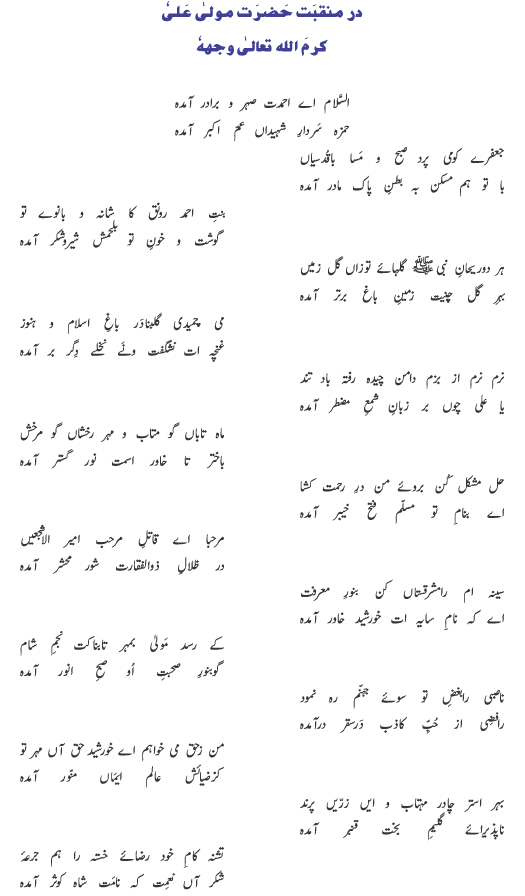 در منقبت حضرت مولیٰ علی
کرم الله تعالیٰ وجهه
السّلام اے احمدت صہر و برادر آمدہ
حمزہ سردارِ شہیداں عم اکبر آمدہ
جعفرے کومی پرد صبح و مسا باقدسیاں
با تو ہم مسکن بہ بطنِ پاک مادر آمدہ
بنتِ احمد رونق کا شانہ و بانوے تو
گوشت و خونِ تو بلحمش شیروشکر آمدہ
ہر دوریحانِ نبی ﷺ گلہائے توزاں گل زمیں
بہرِ گل چنیت زمینِ باغ برتر آمدہ
می چمیدی گلبنادر باغِ اسلام و ہنوز
غنچہ ات نشگفت ونے نخلے دِگر بر آمدہ
نرم نرم از بزم دامن چیدہ رفتہ باد تند
یا علی چوں بر زبانِ شمعِ مضطر آمدہ
ماہ تاباں گو متاب و مہر رخشاں گو مرخش
باختر تا خاور اسمت نور گستر آمدہ
حل مشکل کُن بروئے من درِ رحمت کشا
اے بنامِ تو مسلّم فتح خیبر آمدہ
مرحبا اے قاتلِ مرحب امیر الاشجعیں
در ظلالِ ذوالفقارت شور محشر آمدہ
سینہ ام رامشرقستاں کن بنورِ معرفت
اے کہ نامِ سایہ ات خورشیدِ خاور آمدہ
کے رسد مَولیٰ بمہر تابناکت نجم شام
گوبنورِ صحبتِ اُو صبحِ انور آمدہ
ناصبی رابغضِ تو سوئے جہنّم رہ نمود
رافضِی از حُبِّ کاذب دَرسقر درآمدہ
من زحق می خواہم اے خورشید حق آں مہر تو
کزضیائش عالمِ ایماں منّور آمدہ
بہر استر چادر مہتاب و ایں زرّیں پرند
ناپذیرائے گلیمِ بخت قنبر آمدہ
تشنہ کامِ خود رضائے خستہ را ہم جرعۂ
شکر آں نعمت کہ نامت شاہ کوثر آمدہ